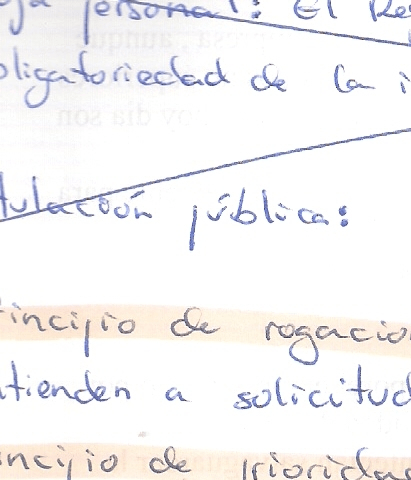 ja persona": El Re
oligatoriedad de la i
tulación pública:
incipio de rogacio
tienden a solicitud
ncipio de priorida